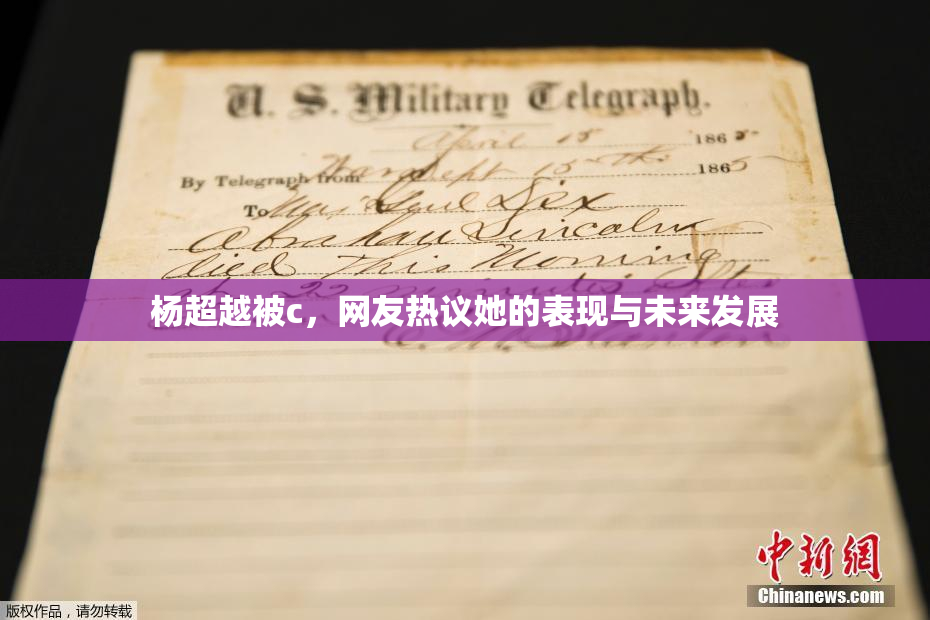 U. S. Military Telegraph.
April 15 1865
By Telegraph from War Dept 15th 1865
To Maj Genl Dix
Abraham Lincoln
died This Morning
at 22 minutes after
杨超越被c，网友热议她的表现与未来发展
E. M. Stanton
中新网
Chinanews.com
版权作品，请勿转载